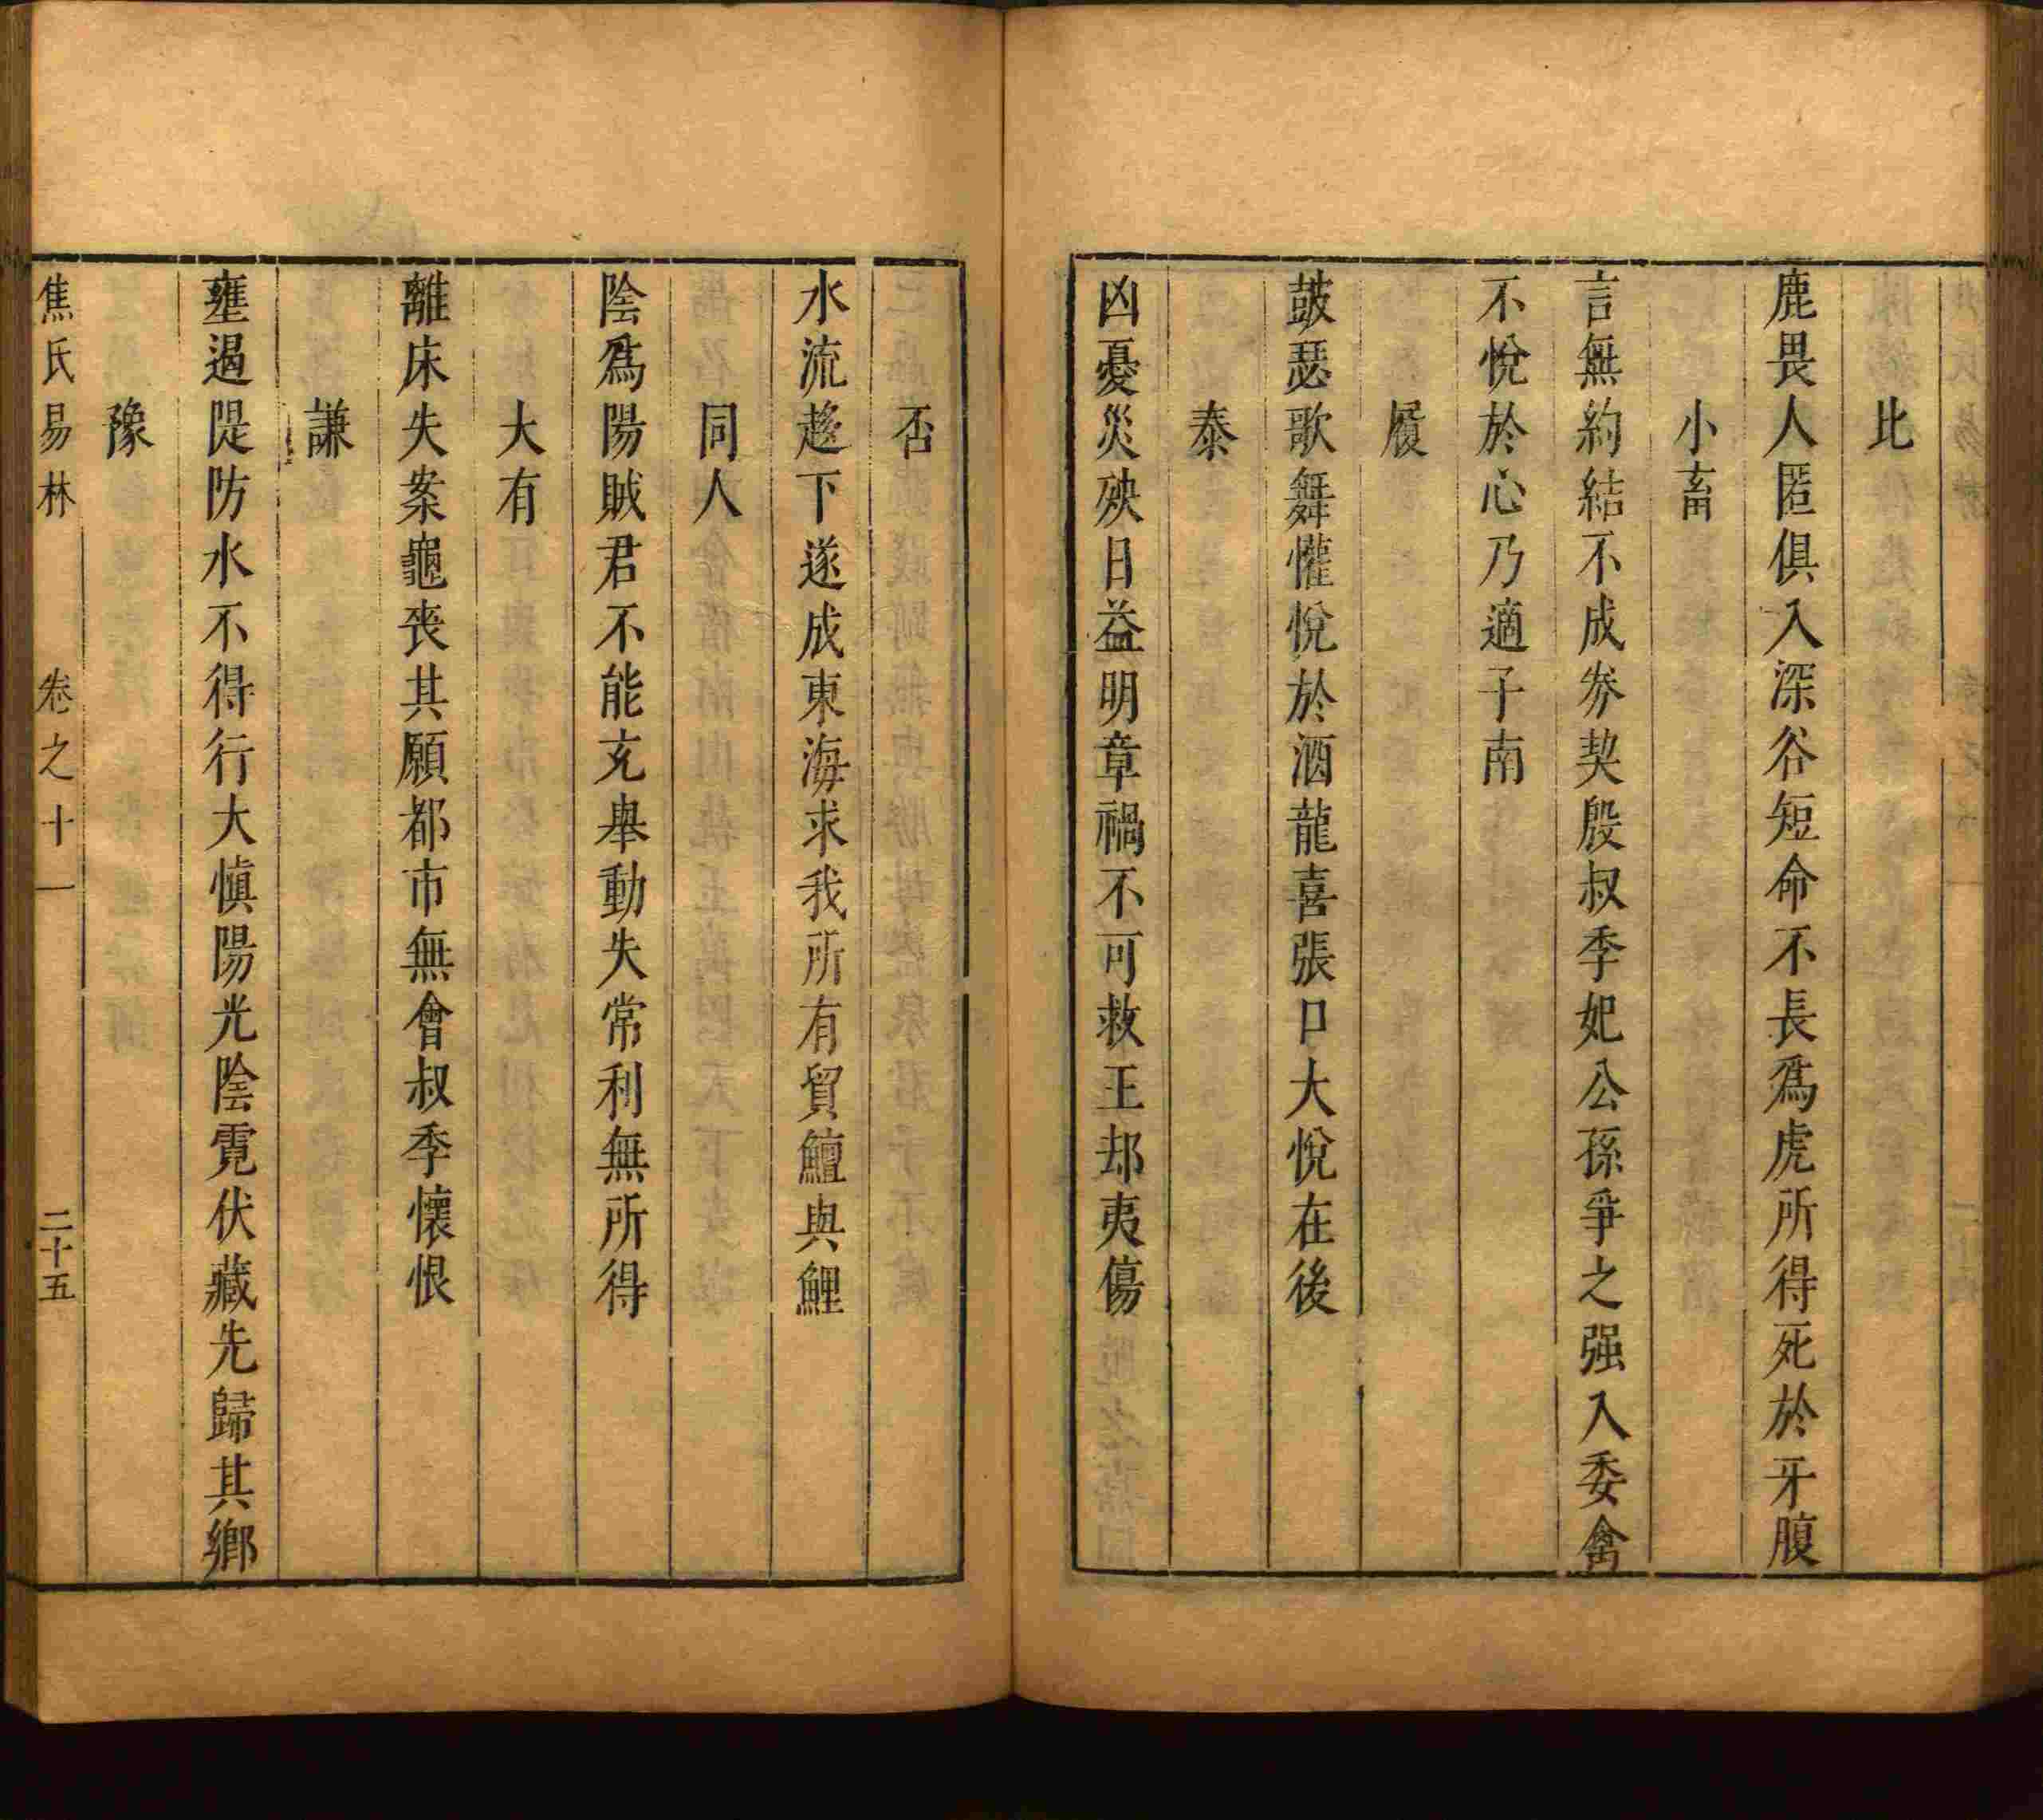 比
鹿畏人匿俱入深谷短命不長爲虎所得死於牙腹
小畜
言無約結不成券契殷叔季妃公孫爭之强入委禽
不悅於心乃適子南
履
鼓瑟歌舞懽悅於酒龍喜張口大悅在後
泰
凶憂災殃日益明章禍不可救王却夷傷
否
水流趍下遂成東海求我所有買鱣與鯉
同人
陰爲陽賊君不能克舉動失常利無所得
大有
離床失案龜喪其願都市無會叔季懷恨
謙
壅遏隄防水不得行大慎陽光陰霓伏藏先歸其鄉
豫
焦氏易林 卷之十一 二十五